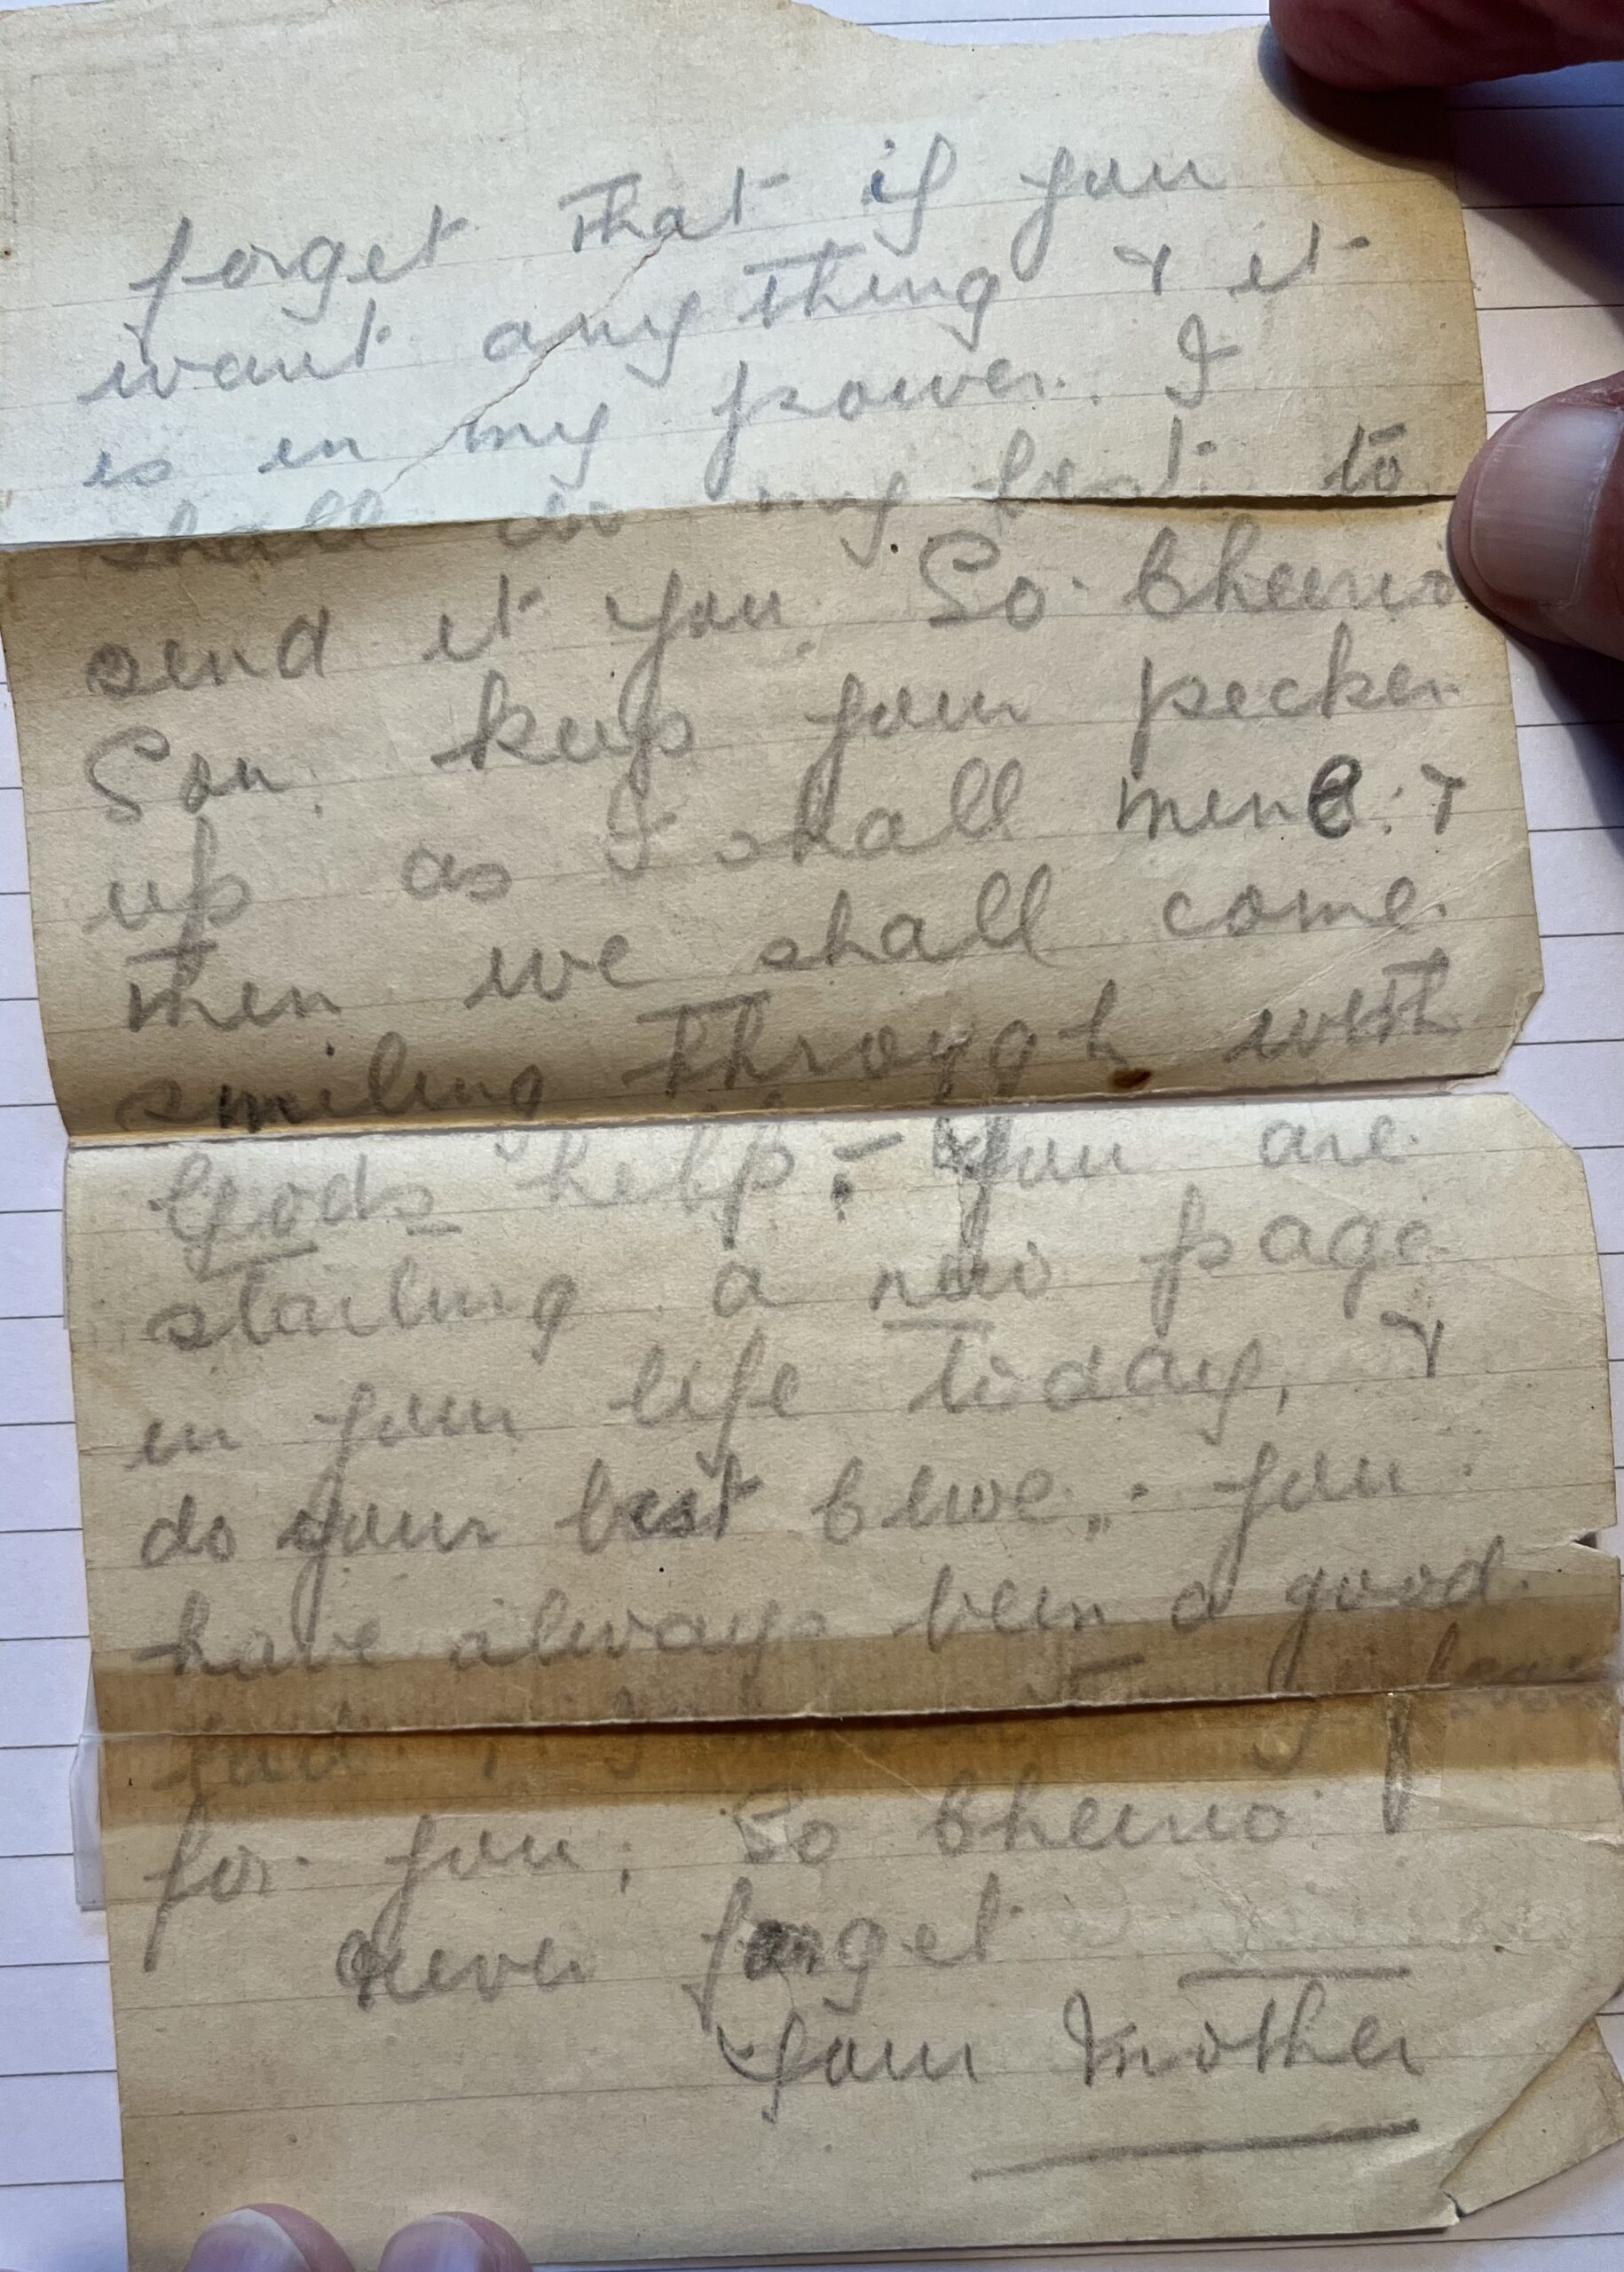 forget that if you
want any thing & it
is in my power. I
shall do my best to
send it you. So Cheerio
Son. keep your pecker
up as I shall mine. &
then we shall come
smiling through with
Gods help. - You are
starting a new page
in your life today, &
do your best Clive. you
have always been a good
lad
for you. So Cheerio
never forget
Your Mother